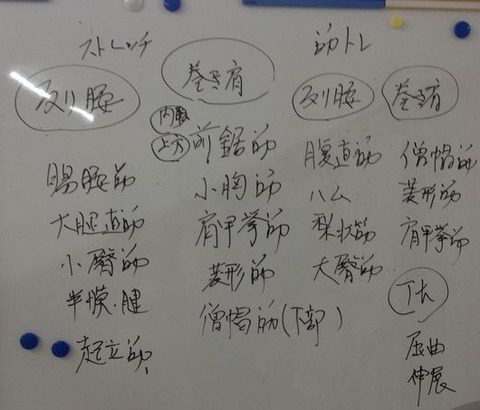 ストレッチ
反り腰
腸腰筋
大腿直筋
小臀筋
半膜・腱
起立筋
巻き肩
内転
上方
前鋸筋
小胸筋
肩甲挙筋
菱形筋
僧帽筋(下部)
筋トレ
反り腰
腹直筋
ハム
梨状筋
大臀筋
巻き肩
僧帽筋
菱形筋
肩甲挙筋
屈曲
伸展